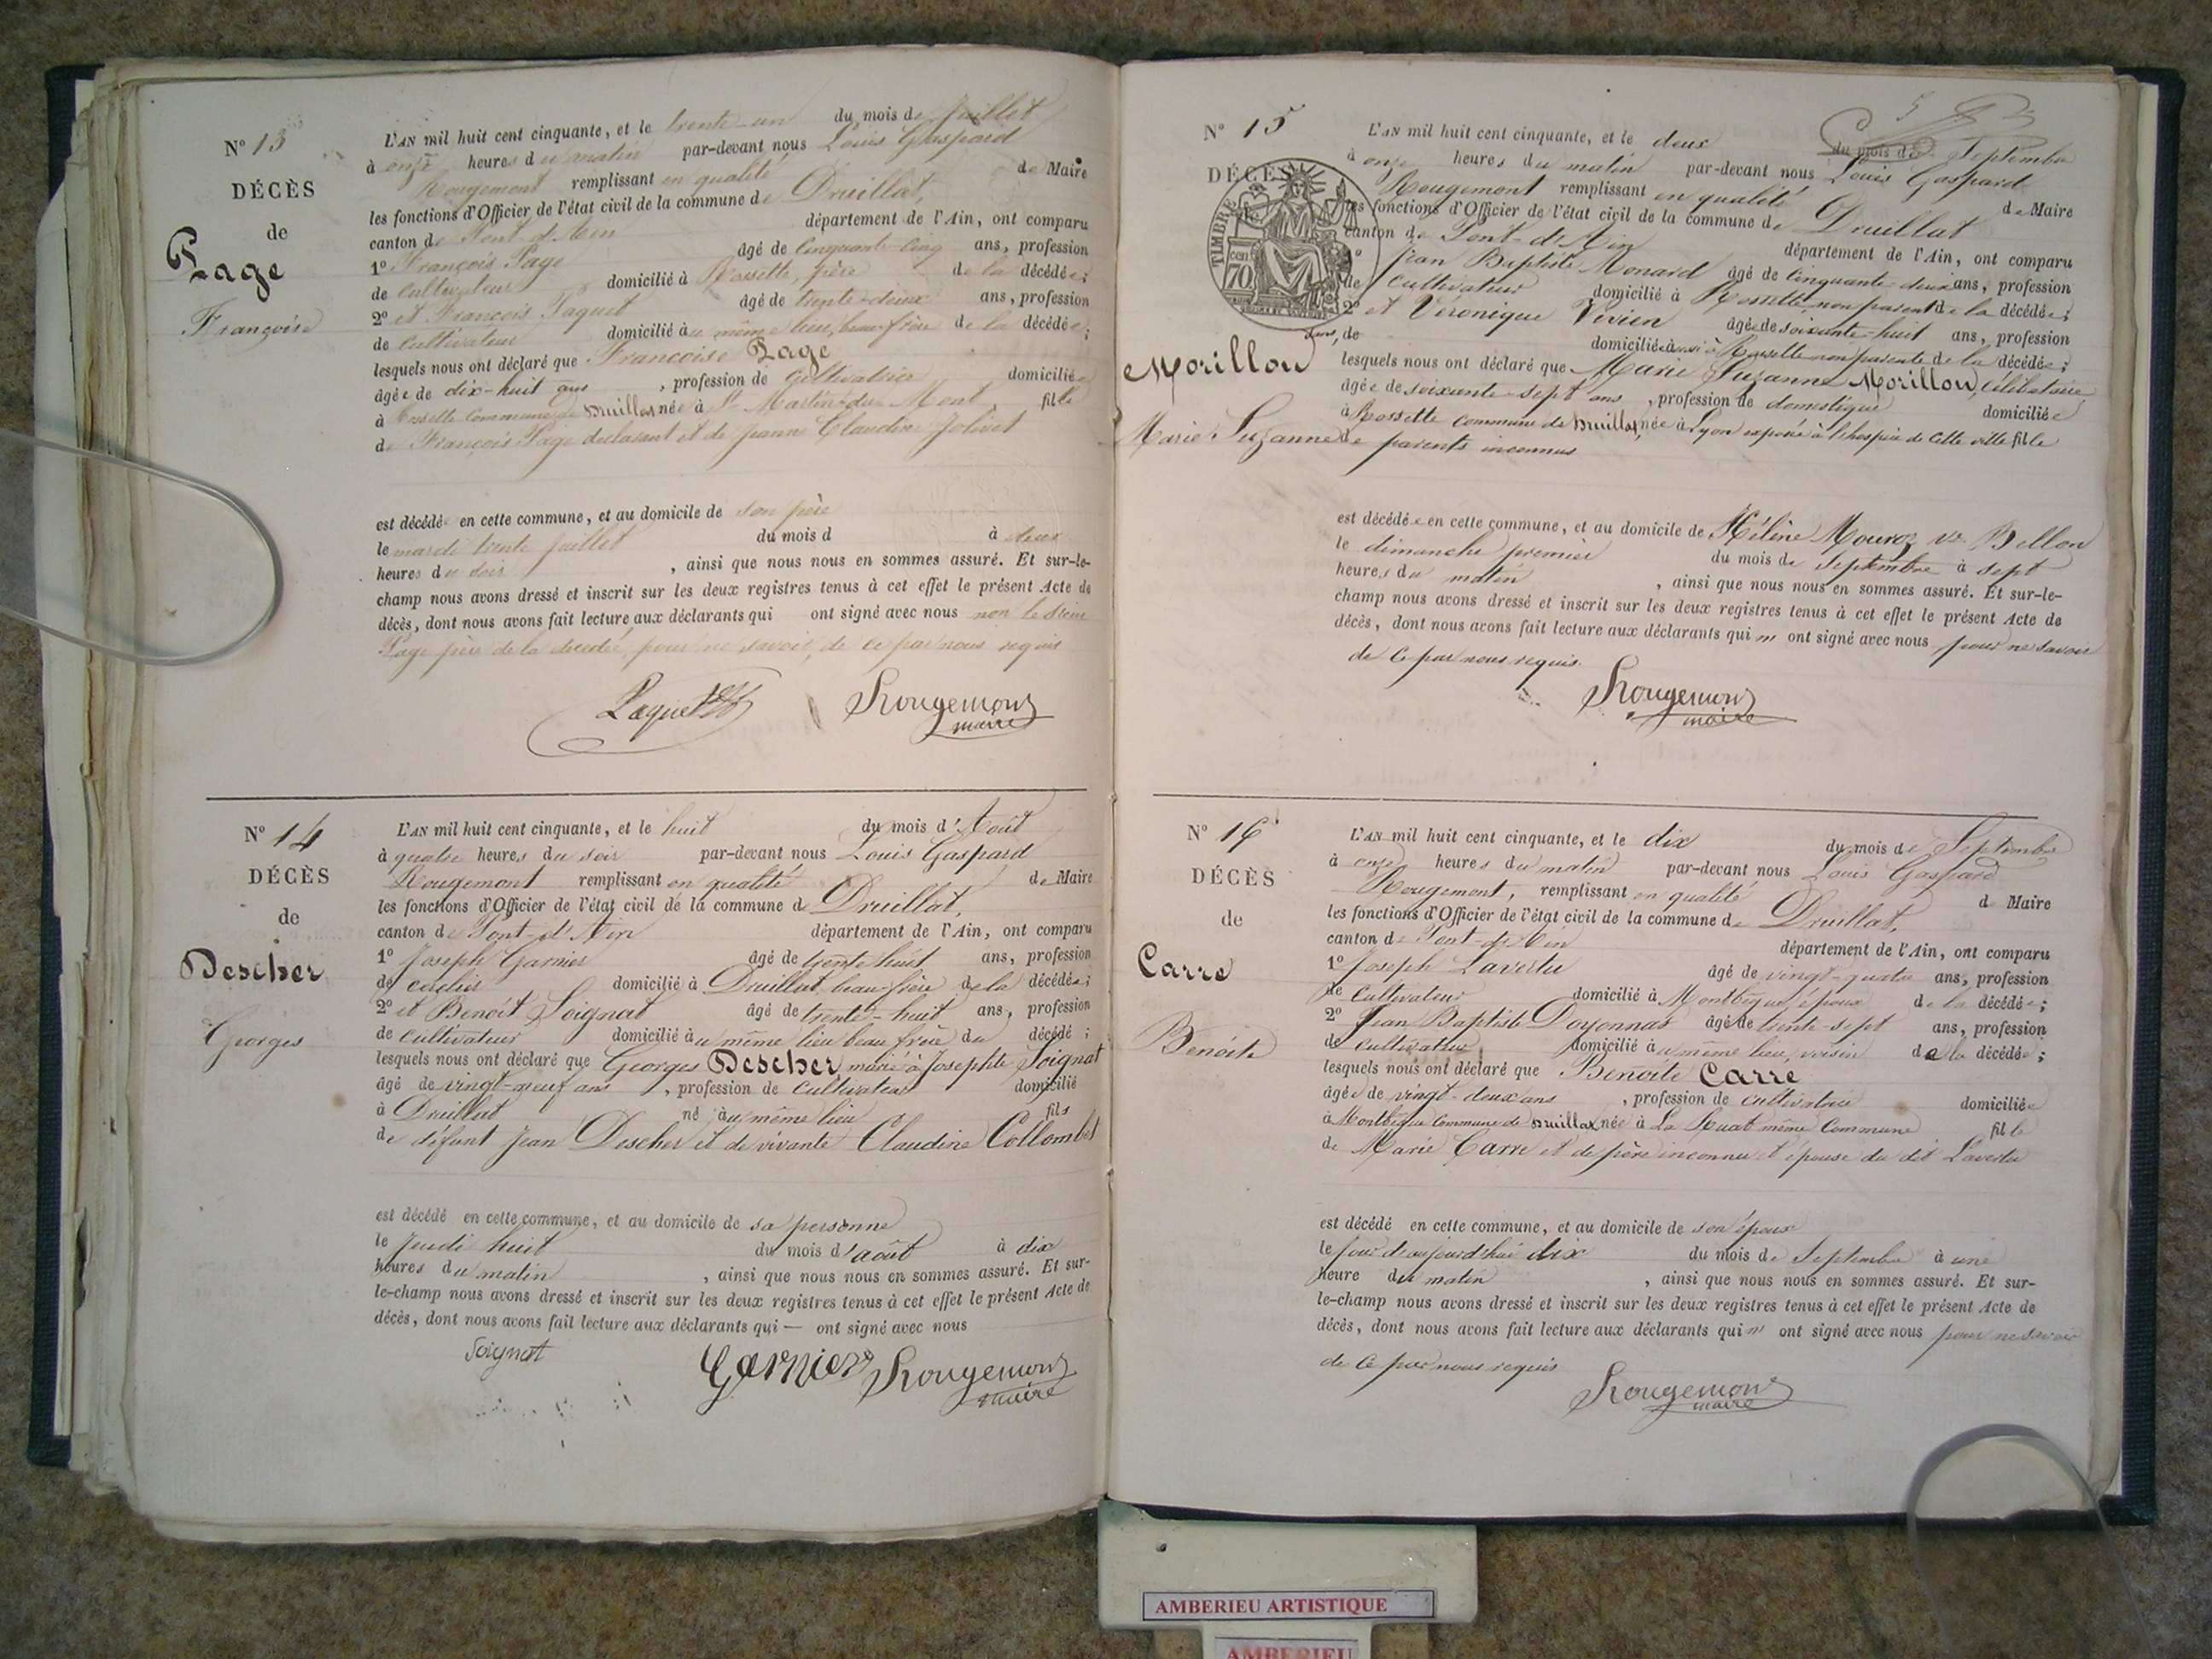 N° 13
DÉCÈS
de
Page
Françoise
L'AN mil huit cent cinquante, et le trente-un du mois de Juillet
à onze heures du matin par-devant nous Louis Gaspard
Rougemont remplissant en qualité de Maire
les fonctions d'Officier de l'état civil de la commune de Druillat,
canton de Pont-d'Ain département de l'Ain, ont comparu
1° François Page âgé de cinquante-cinq ans, profession
de cultivateur domicilié à Rossette, père de la décédée;
2° et François Paquet âgé de trente-deux ans, profession
de cultivateur domicilié au même lieu, beau-frère de la décédée;
lesquels nous ont déclaré que Françoise Page
âgée de dix-huit ans, profession de cultivatrice domiciliée
à Rossette commune de Druillat, née à St Martin du Mont, fille
de François Page déclarant et de Jeanne Claudine Jolivet
est décédée en cette commune, et au domicile de son père
le mardi trente juillet du mois d à deux
heures du soir, ainsi que nous nous en sommes assuré. Et sur-le-
champ nous avons dressé et inscrit sur les deux registres tenus à cet effet le présent Acte de
décès, dont nous avons fait lecture aux déclarants qui ont signé avec nous non le Sieur
Page père de la décédée, pour ne savoir, de ce par nous requis
Paquet
Rougemont
maire
N° 14
DÉCÈS
de
Descher
Georges
L'AN mil huit cent cinquante, et le huit du mois d'Août
à quatre heures du soir par-devant nous Louis Gaspard
Rougemont remplissant en qualité de Maire
les fonctions d'Officier de l'état civil de la commune de Druillat,
canton de Pont-d'Ain département de l'Ain, ont comparu
1° Joseph Garnier âgé de trente huit ans, profession
de domicilié à Druillat, beau-frère de la décédée;
2° et Benoît Soignat âgé de trente-huit ans, profession
de cultivateur domicilié au même lieu beau frère du décédé;
lesquels nous ont déclaré que Georges Descher marié à Josephte Soignat
âgé de vingt-neuf ans, profession de cultivateur domicilié
à Druillat né au même lieu fils
de défunt Jean Descher et de vivante Claudine Collombet
est décédé en cette commune, et au domicile de sa personne
le Jeudi huit du mois d'août à dix
heures du matin, ainsi que nous nous en sommes assuré. Et sur-
le-champ nous avons dressé et inscrit sur les deux registres tenus à cet effet le présent Acte de
décès, dont nous avons fait lecture aux déclarants qui — ont signé avec nous
Soignat
Garnier
Rougemont
maire
N° 15
DÉCÈS
TIMBRE
70
Morillon
Marie Suzanne
L'AN mil huit cent cinquante, et le deux du mois de Septembre
à onze heures du matin par-devant nous Louis Gaspard
Rougemont remplissant en qualité de Maire
les fonctions d'Officier de l'état civil de la commune de Druillat
canton de Pont-d'Ain département de l'Ain, ont comparu
Jean Baptiste Monard âgé de cinquante-deux ans, profession
de cultivateur domicilié à Rossette, non parent de la décédée;
2° et Véronique Vivien âgée de soixante-huit ans, profession
de domiciliée aussi à Rossette non parente de la décédée;
lesquels nous ont déclaré que Marie Suzanne Morillon, célibataire
âgée de soixante-sept ans, profession de domestique domiciliée
à Rossette commune de Druillat, née à Lyon exposée à l'hospice de cette ville fille
de parents inconnus
est décédée en cette commune, et au domicile de Hélène Mouroz ve Bellon
le dimanche premier du mois de Septembre à sept
heures du matin, ainsi que nous nous en sommes assuré. Et sur-le-
champ nous avons dressé et inscrit sur les deux registres tenus à cet effet le présent Acte de
décès, dont nous avons fait lecture aux déclarants qui n' ont signé avec nous pour ne savoir
de ce par nous requis.
Rougemont
maire
N° 16
DÉCÈS
de
Carre
Benoite
L'AN mil huit cent cinquante, et le dix du mois de Septembre
à onze heures du matin par-devant nous Louis Gaspard
Rougemont, remplissant en qualité de Maire
les fonctions d'Officier de l'état civil de la commune de Druillat,
canton de Pont-d'Ain département de l'Ain, ont comparu
1° Joseph Lavertu âgé de vingt-quatre ans, profession
de cultivateur domicilié à Montbègue, époux de la décédée;
2° Jean Baptiste Doyonnas âgé de trente-sept ans, profession
de cultivateur domicilié au même lieu, voisin de la décédée;
lesquels nous ont déclaré que Benoite Carre
âgée de vingt-deux ans, profession de cultivatrice domiciliée
à Montbègue Commune de Druillat, née à La même Commune fille
de Marie Carre et de père inconnu et épouse du dit Lavertu
est décédé en cette commune, et au domicile de son époux
le jour d'aujourd'hui dix du mois de Septembre à une
heure du matin, ainsi que nous nous en sommes assuré. Et sur-
le-champ nous avons dressé et inscrit sur les deux registres tenus à cet effet le présent Acte de
décès, dont nous avons fait lecture aux déclarants qui n' ont signé avec nous pour ne savoir
de ce par nous requis
Rougemont
maire
AMBERIEU ARTISTIQUE
AMBERIEU